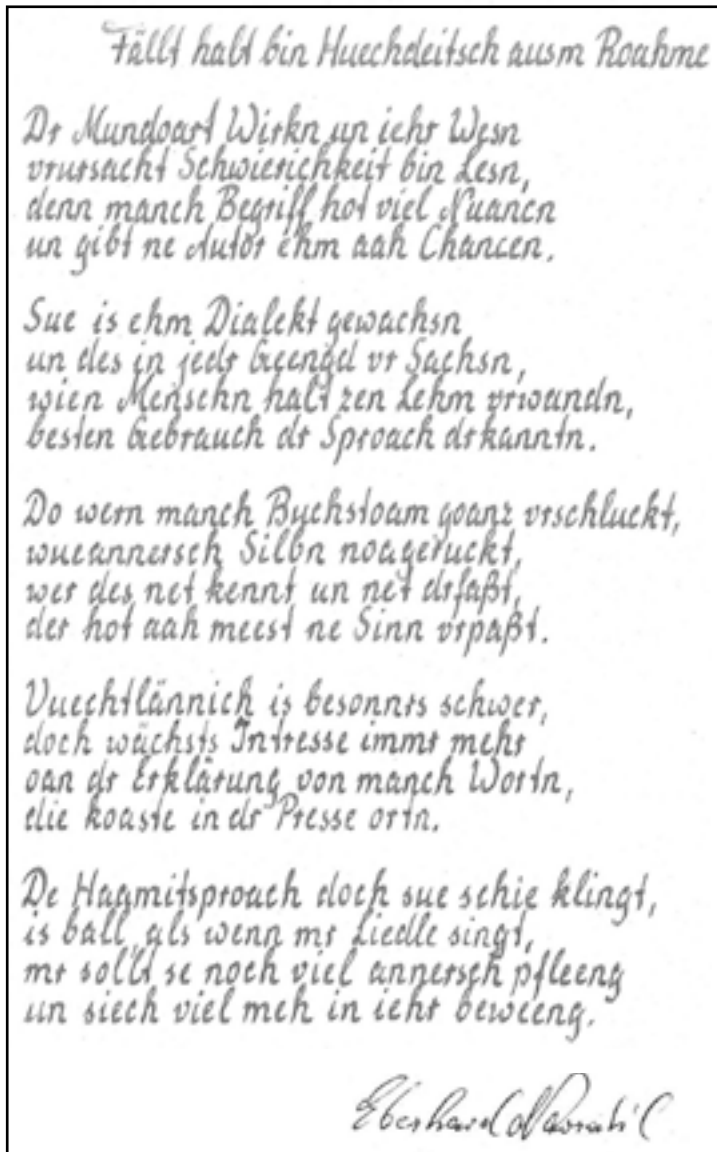 Fällt halt bin Huechdeitsch ausm Roahme
Dr Mundoart Wirkn un iehr Wesn
vrursacht Schwierichkeit bin Lesn,
denn manch Begriff hot viel Nuancn
un gibt ne Autor ehm aah Chancen.
Sue is ehm Dialekt gewachsn
un des in jedr Geengd vr Sachsn,
wien Menschn halt zen Lehm vrwandn,
besten Gebrauch dr Sproach drkanntn.
Do wern manch Buchstoam goanz vrschluckt,
wueannersch Silbn noageruckt,
wer des net kennt un net drfaßt,
der hot aah meest ne Sinn vrpaßt.
Vuechtlännich is besonnrs schwer,
doch wächsts Intresse immr mehr
oan dr Erklärung von manch Wortn,
die koaste in dr Presse ortn.
De Haamitsproach doch sue schie klingt,
is ball, als wenn mr Liedle singt,
mr sollt se noch viel annersch pfleeng
un siech viel meh in iehr beweeng.
Eberhard